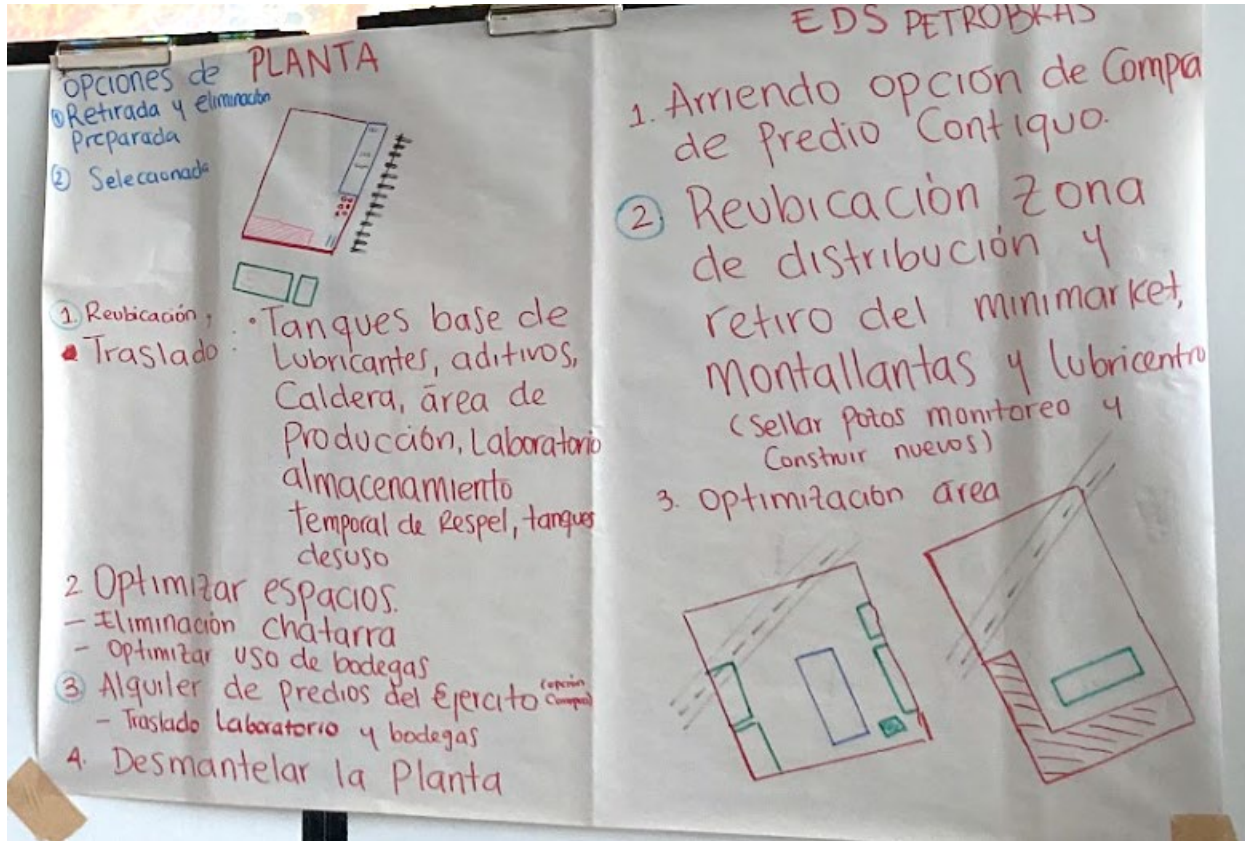 PLANTA
Opciones de
① Retirada y eliminación
Preparada
② Seleccionada
1. Reubicación,
• Traslado :
• Tanques base de
Lubricantes, aditivos,
Caldera, área de
Producción, Laboratorio
almacenamiento
temporal de Respel, tanques
desuso
2 Optimizar espacios.
- Eliminación chatarra
- Optimizar uso de bodegas
3 Alquiler de predios del Ejercito (opción Compra)
- Traslado Laboratorio y bodegas
4. Desmantelar la Planta
EDS PETROBRAS
1. Arriendo opción de Compra
de Predio Contiguo.
2 Reubicación zona
de distribución y
retiro del minimarket,
montallantas y lubricentro
(Sellar Pozos monitoreo y
Construir nuevos)
3. Optimización área